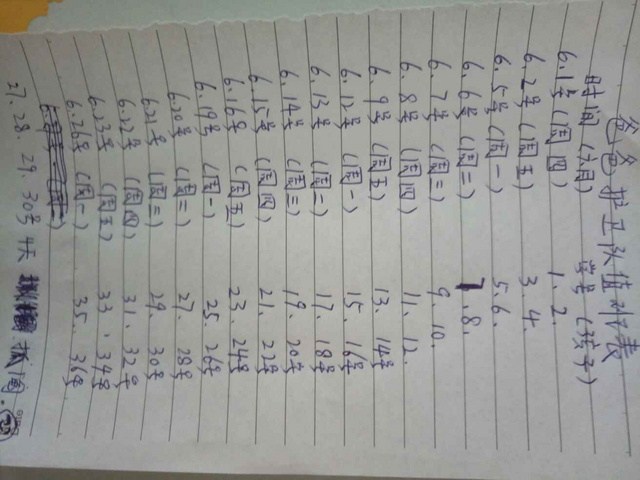 爸爸护卫队值班表
时间（六月） 学号（孩子）
6.1号（周四） 1. 2.
6.2号（周五） 3. 4.
6.5号（周一） 5. 6.
6.6号（周二） 7. 8.
6.7号（周三） 9. 10.
6.8号（周四） 11. 12.
6.9号（周五） 13. 14号
6.12号（周一） 15. 16号
6.13号（周二） 17. 18号
6.14号（周三） 19. 20号
6.15号（周四） 21. 22号
6.16号（周五） 23. 24号
6.19号（周一） 25. 26号
6.20号（周二） 27. 28号
6.21号（周三） 29. 30号
6.22号（周四） 31. 32号
6.23号（周五） 33. 34号
6.26号（周一） 35. 36号
27. 28. 29. 30号 4天